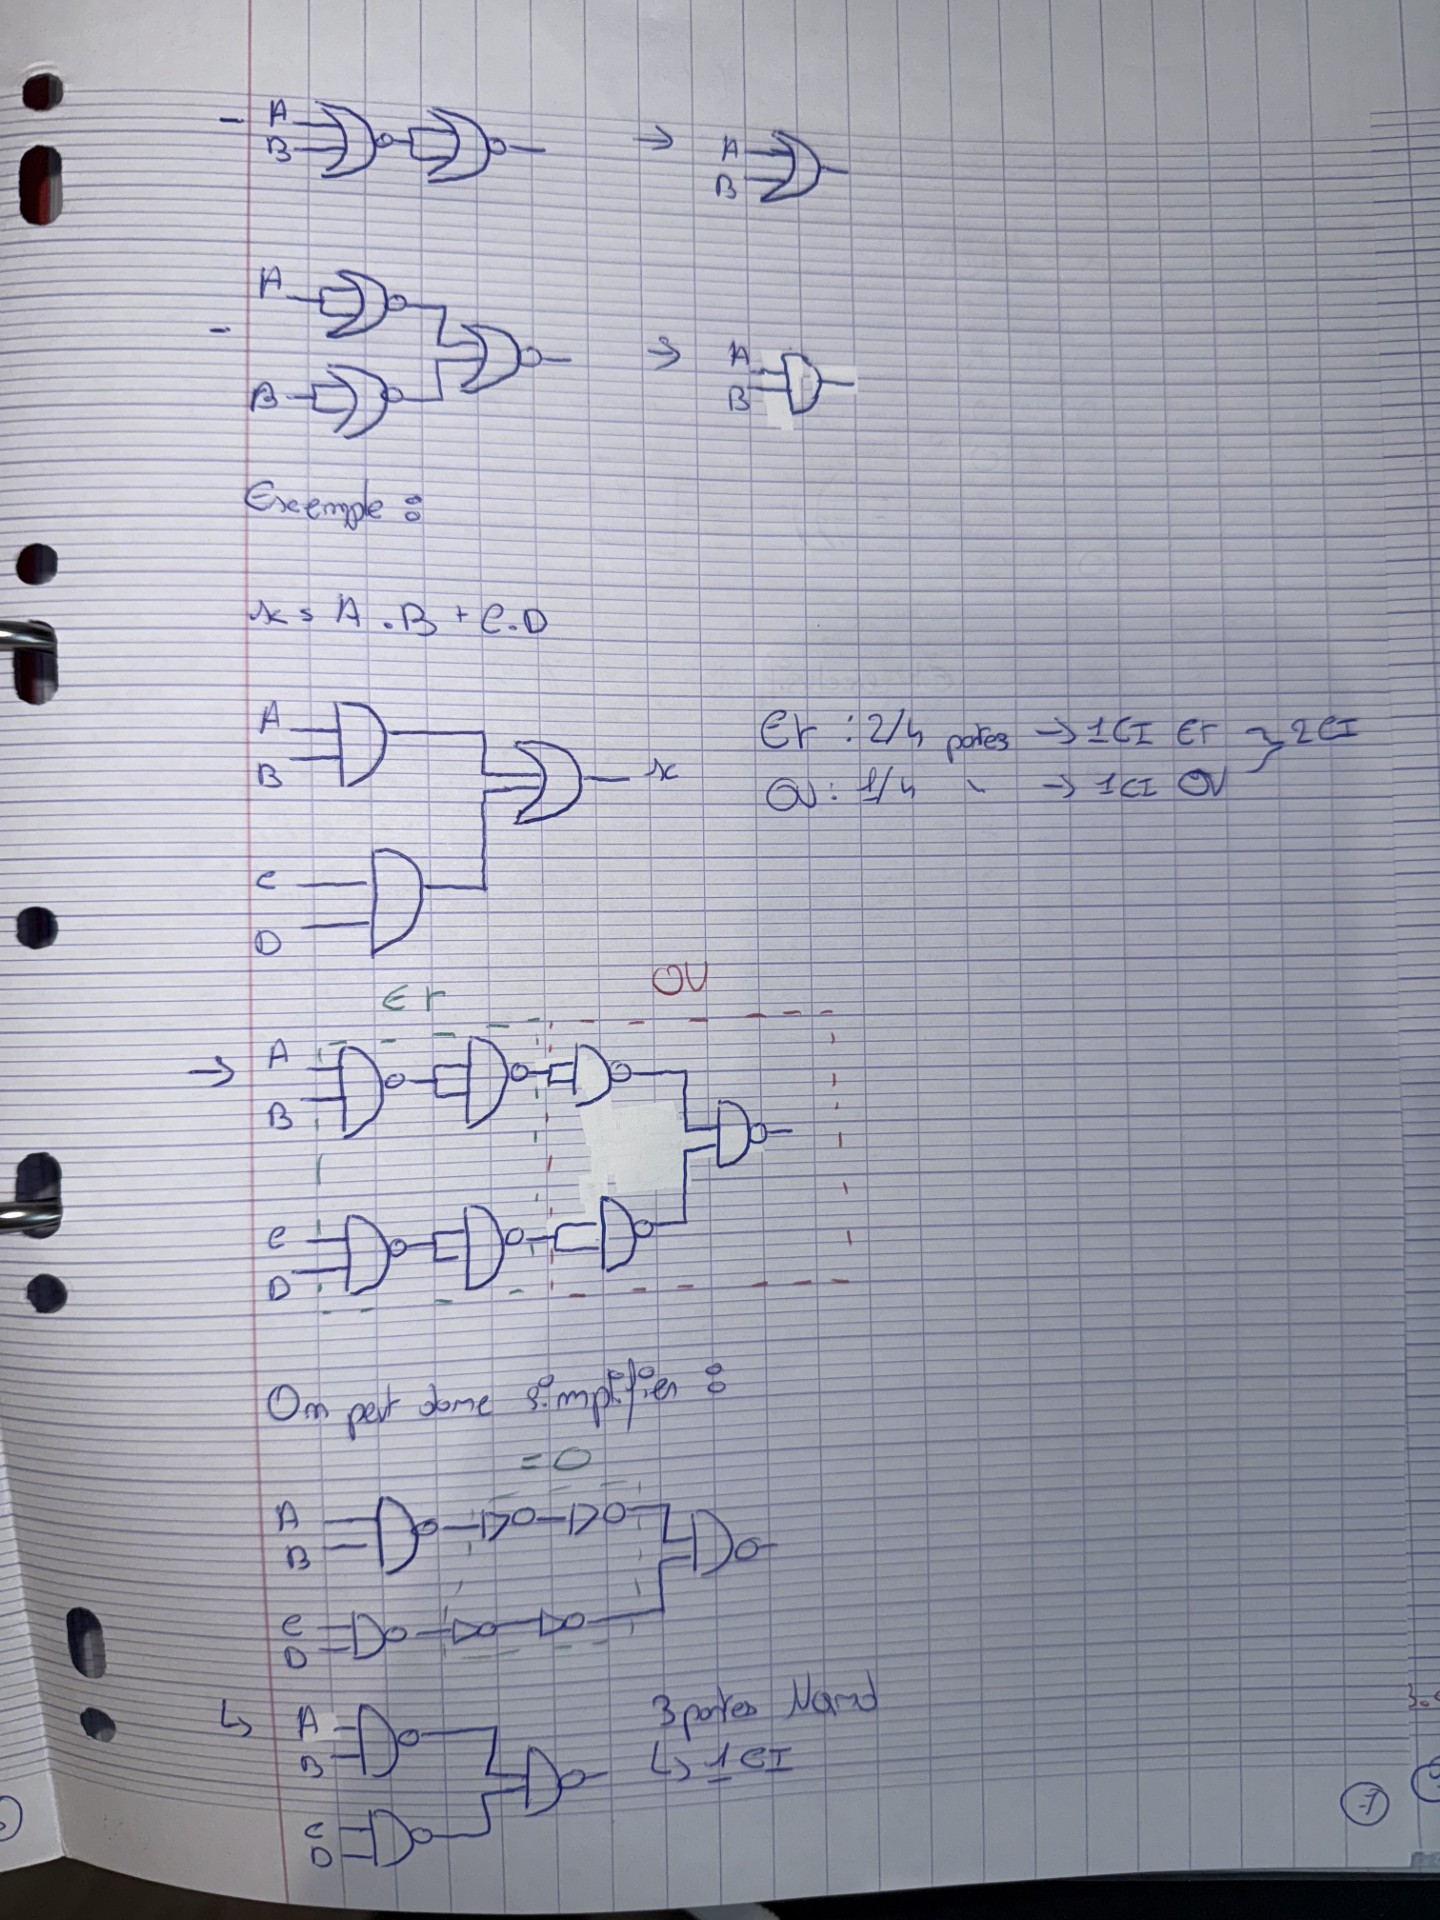 - A
B
→
A
B
A
-
B
→
A
B
Exemple :
x = A . B + C . D
A
B
x
C
D
Et : 2/4 portes → 1 CI Et } 2 CI
OU : 1/4 " → 1 CI OU
Et
OU
→ A
B
C
D
On peut donc simplifier :
= 0
A
B
C
D
↳ A
B
C
D
3 portes Nand
↳ 1 CI
7